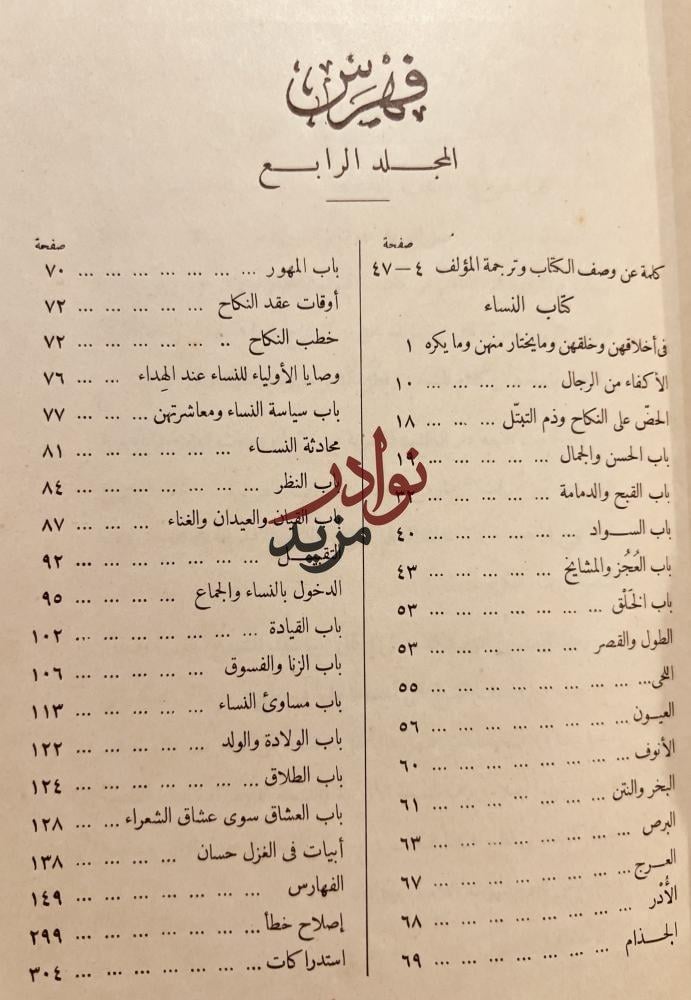 فهرس
المجلد الرابع
صفحة
كلمة عن وصف الكتاب وترجمة المؤلف ٤ – ٤٧
كتاب النساء
فى أخلاقهن وخلقهن وما يختار منهن وما يكره ١
الأكفاء من الرجال ... ... ... ... ... ١٠
الحضّ على النكاح وذم التبتّل ... ... ... ١٨
باب الحسن والجمال ... ... ... ... ... ١٩
باب القبح والدمامة ... ... ... ... ... ٣٢
باب السواد ... ... ... ... ... ... ٤٠
باب العُجُز والمشايخ ... ... ... ... ... ٤٣
باب الخَلْق ... ... ... ... ... ... ... ٥٣
الطول والقصر ... ... ... ... ... ... ٥٣
اللحى ... ... ... ... ... ... ... ... ٥٥
العيون ... ... ... ... ... ... ... ... ٥٦
الأنوف ... ... ... ... ... ... ... ٦٠
البخر والنتن ... ... ... ... ... ... ... ٦١
البرص ... ... ... ... ... ... ... ٦٣
العرج ... ... ... ... ... ... ... ... ٦٧
الأُدْر ... ... ... ... ... ... ... ... ٦٨
الجذام ... ... ... ... ... ... ... ٦٩
صفحة
باب المهور ... ... ... ... ... ... ... ٧٠
أوقات عقد النكاح ... ... ... ... ... ٧٢
خطب النكاح .. ... ... ... ... ... ٧٢
وصايا الأولياء للنساء عند الهِداء ... ... ٧٦
باب سياسة النساء ومعاشرتهن ... ... ... ٧٧
محادثة النساء ... ... ... ... ... ... ٨١
باب النظر ... ... ... ... ... ... ٨٤
باب القيان والعيدان والغناء ... ... ... ٨٧
التقبيل ... ... ... ... ... ... ... ٩٢
الدخول بالنساء والجماع ... ... ... ... ٩٥
باب القيادة ... ... ... ... ... ... ... ١٠٢
باب الزنا والفسوق ... ... ... ... ... ١٠٦
باب مساوئ النساء ... ... ... ... ... ١١٣
باب الولادة والولد ... ... ... ... ... ١٢٢
باب الطلاق ... ... ... ... ... ... ... ١٢٤
باب العشاق سوى عشاق الشعراء ... ... ... ١٢٨
أبيات فى الغزل حسان ... ... ... ... ... ١٣٨
الفهارس ... ... ... ... ... ... ... ١٤٩
إصلاح خطأ ... ... ... ... ... ... ... ٢٩٩
استدراكات ... ... ... ... ... ... ... ٣٠٤
نوادر
مزيد